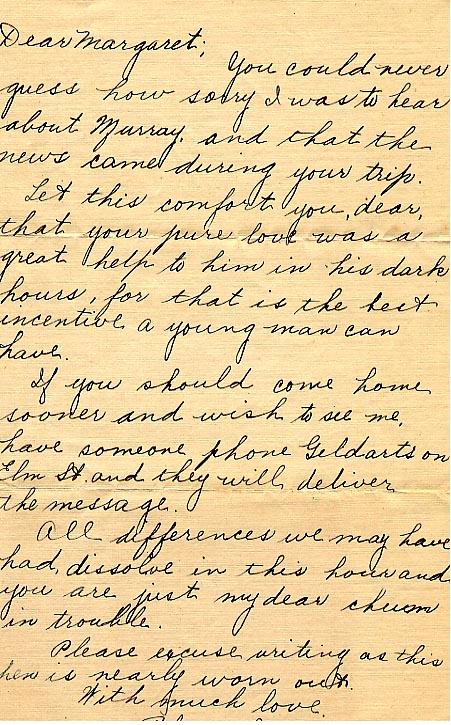 Dear Margaret;
You could never
guess how sorry I was to hear
about Murray. and that the
news came during your trip.
Let this comfort you, dear,
that your pure love was a
great help to him in his dark
hours, for that is the best
incentive a young man can
have.
If you should come home
sooner and wish to see me,
have someone phone Geldarts on
Elm St. and they will deliver
the message.
All differences we may have
had, dissolve in this hour and
you are just my dear chum
in trouble.
Please excuse writing as this
pen is nearly worn out.
With much love